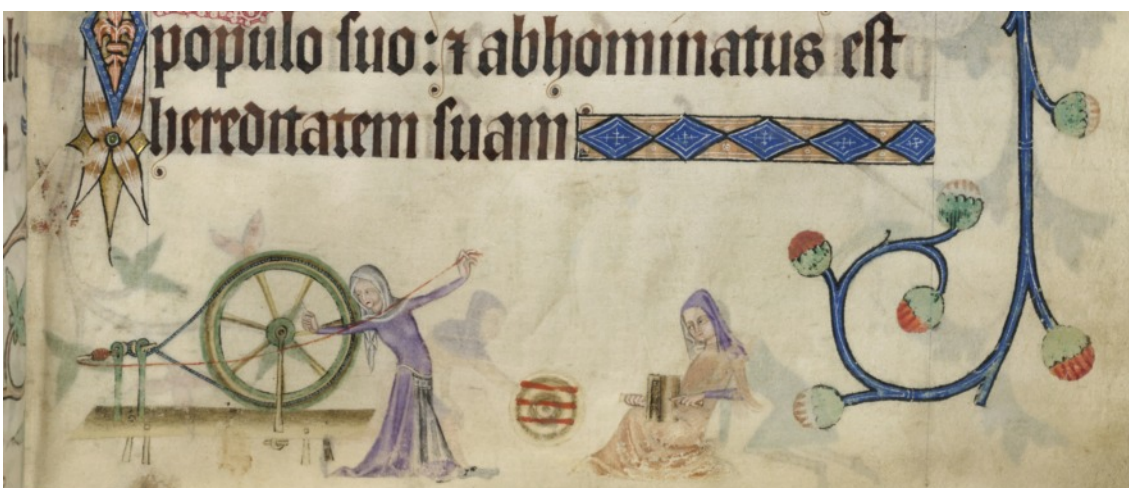 populo suo: ⁊ abhominatus est
hereditatem suam